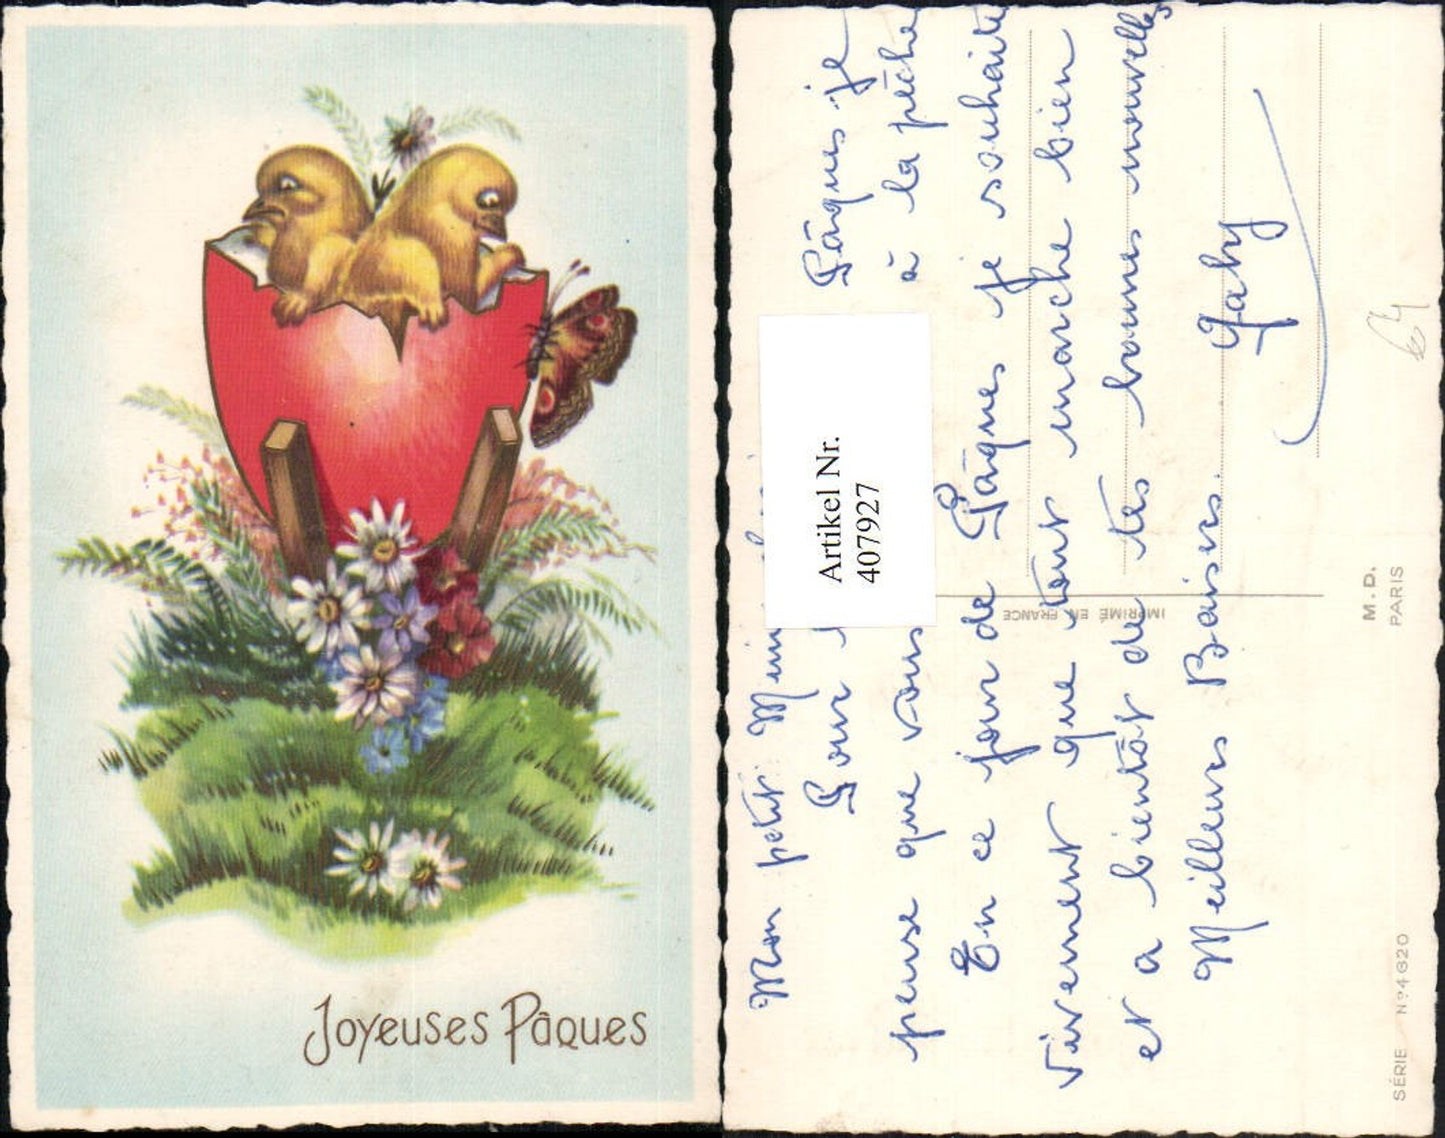 Joyeuses Pâques
Mon petit
Pour Pâques je
pense que vous à la pêche
En ce jour de Pâques je souhaite
vivement que tout marche bien
et a bientôt de tes bonnes nouvelles
Meilleurs Baisers.
Gaby
Artikel Nr.
407927
IMPRIMÉ EN FRANCE
M.D.
PARIS
64
SÉRIE N° 4620